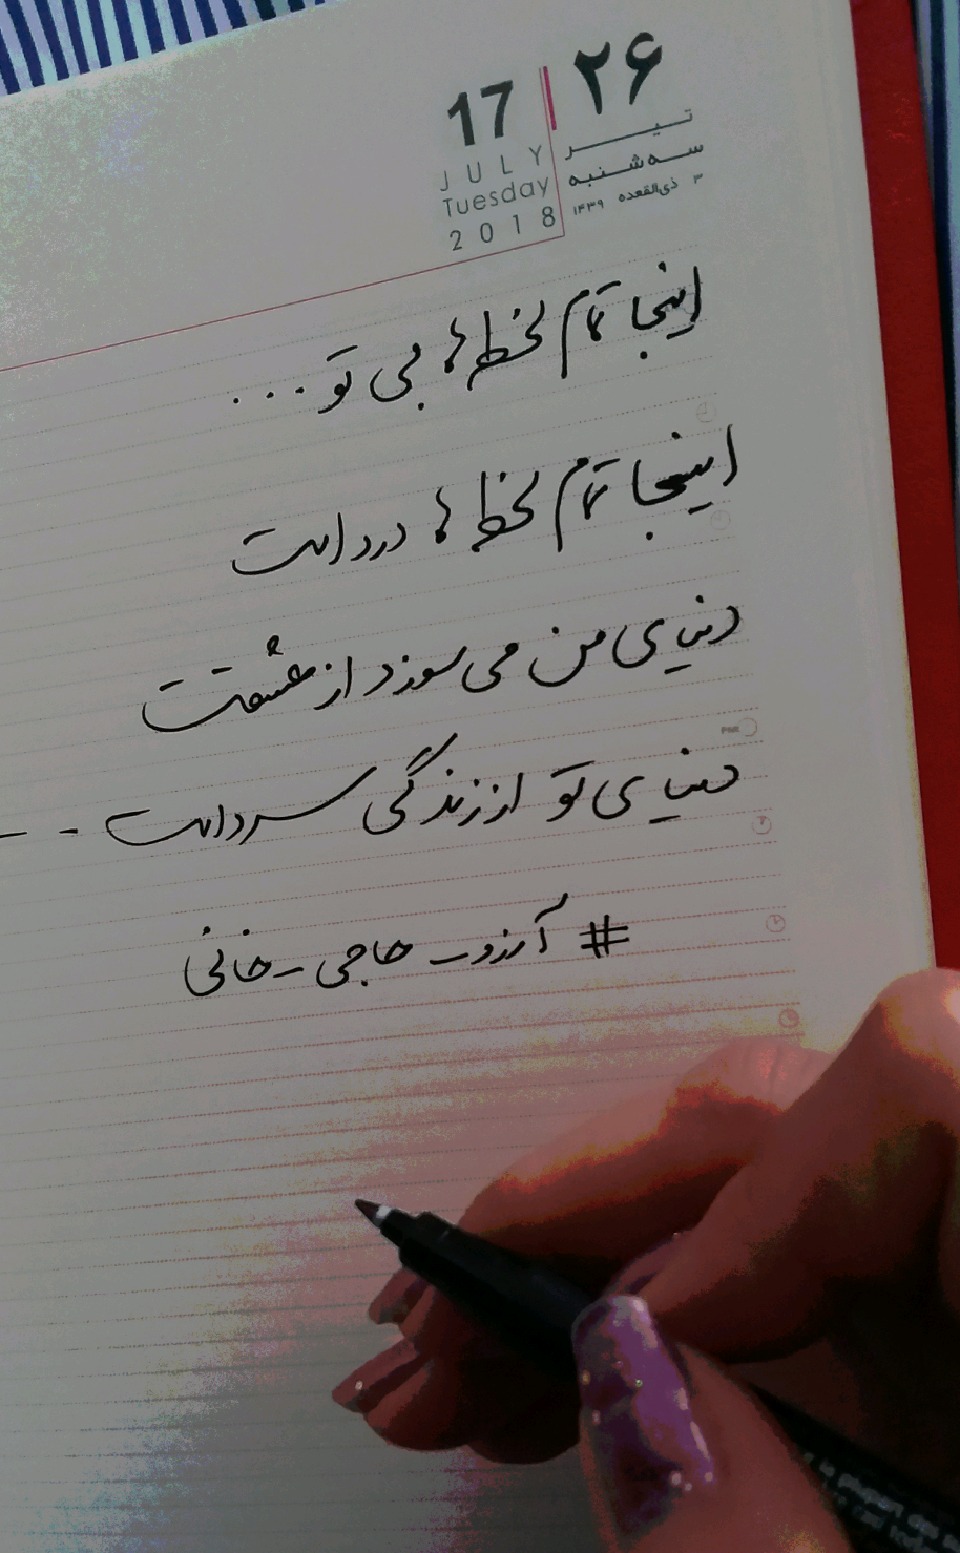 17 | ۲۶
JULY تیر
Tuesday سه‌شنبه
2018 ۳ ذی‌القعده ۱۴۳۹
اینجا تمام لحظه ها بی تو...
اینجا تمام لحظه ها درد است
دنیای من می سوزد از عشقت
دنیای تو از زندگی سرد است - -
# آرزو_حاجی_خانی